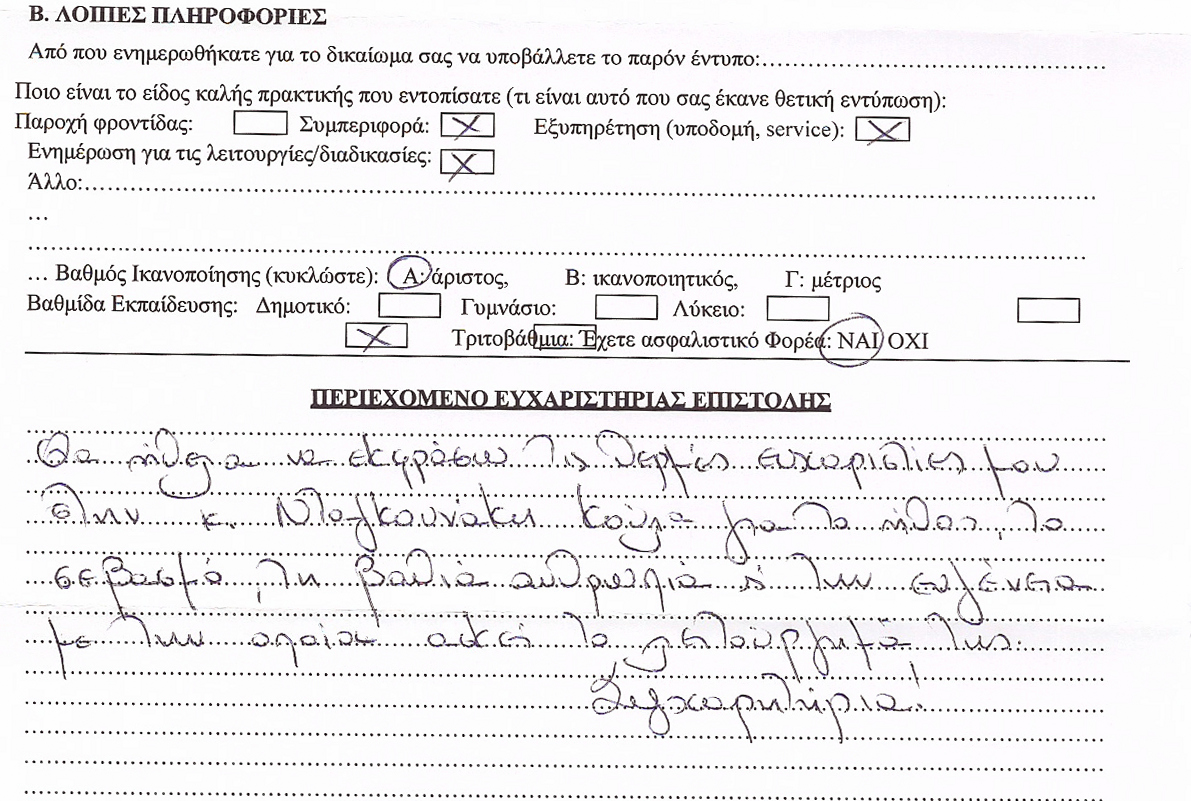 Β. ΛΟΙΠΕΣ ΠΛΗΡΟΦΟΡΙΕΣ
Από που ενημερωθήκατε για το δικαίωμα σας να υποβάλλετε το παρόν έντυπο:
Ποιο είναι το είδος καλής πρακτικής που εντοπίσατε (τι είναι αυτό που σας έκανε θετική εντύπωση):
Παροχή φροντίδας: Συμπεριφορά: Εξυπηρέτηση (υποδομή, service):
Ενημέρωση για τις λειτουργίες/διαδικασίες:
Άλλο:
...
... Βαθμός Ικανοποίησης (κυκλώστε): Α: άριστος, Β: ικανοποιητικός, Γ: μέτριος
Βαθμίδα Εκπαίδευσης: Δημοτικό: Γυμνάσιο: Λύκειο:
Τριτοβάθμια: Έχετε ασφαλιστικό Φορέα: ΝΑΙ ΟΧΙ
ΠΕΡΙΕΧΟΜΕΝΟ ΕΥΧΑΡΙΣΤΗΡΙΑΣ ΕΠΙΣΤΟΛΗΣ
Θα ήθελα να εκφράσω τις θερμές ευχαριστίες μου
στην κ. Νταγκουνάκη Κούλα για το ήθος, το
σεβασμό, τη βαθιά ανθρωπιά κ την ευγένεια
με την οποία ασκεί το λειτούργημά της.
Συγχαρητήρια!